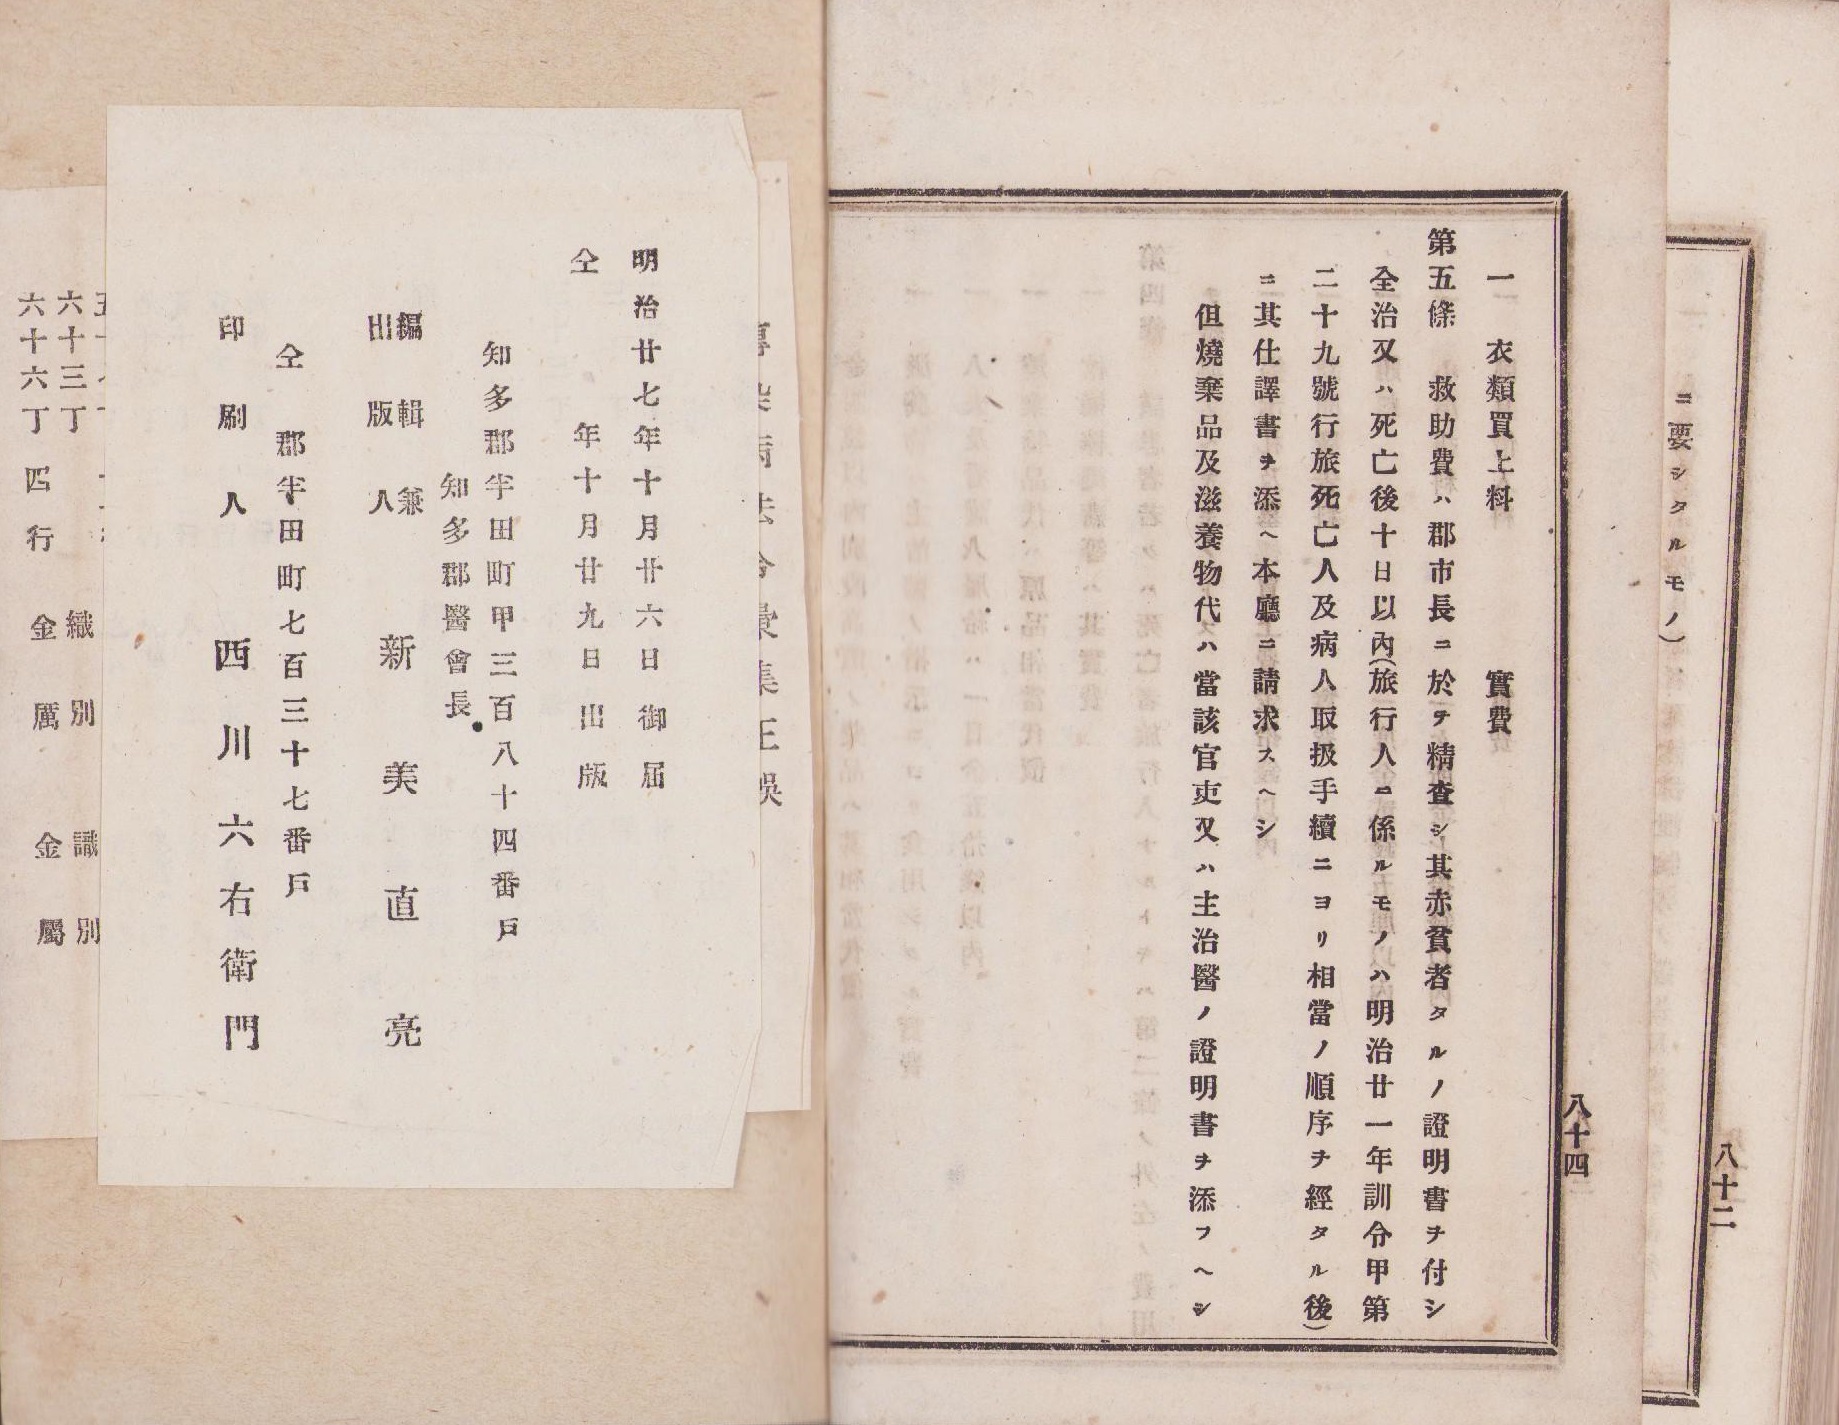 ニ要シタルモノ)
八十二
一 衣類買上料 實費
第五條 救助費ハ郡市長ニ於テ精査シ其赤貧者タルノ證明書ヲ付シ
全治又ハ死亡後十日以內(旅行人ニ係ルモノハ明治廿一年訓令甲第
二十九號行旅死亡人及病人取扱手續ニヨリ相當ノ順序ヲ經タル後)
ニ其仕譯書ヲ添ヘ本廳ニ請求スヘシ
但燒棄品及滋養物代ハ當該官吏又ハ主治醫ノ證明書ヲ添フヘシ
八十四
法令彙集正誤
明治廿七年十月廿六日御屆
仝 年十月廿九日出版
知多郡半田町甲三百八十四番戶
知多郡醫會長
編輯兼
出版人 新美直亮
仝 郡半田町七百三十七番戶
印刷人 西川六右衛門
六十三丁 織別 識別
六十六丁四行 金厲 金屬